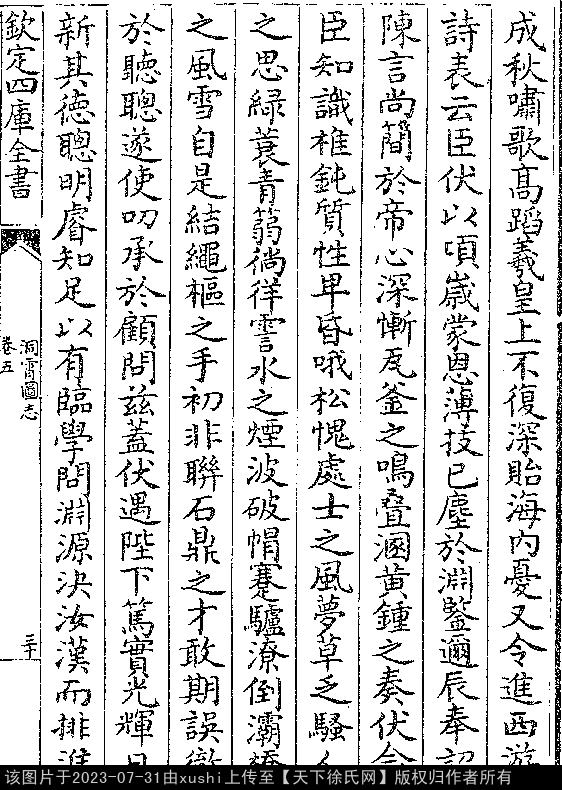 成秋嘯歌高蹈羲皇上不復深貽海内憂又令進西游
詩表云臣伏以頃歲蒙恩薄技已塵於淵鑒邇辰奉詔
陳言尚簡於帝心深慚瓦釜之鳴疊溷黄鍾之奏伏念
臣知識椎鈍質性卑昏哦松愧處士之風夢草乏騷人
之思綠蓑青蒻徜徉霅水之煙波破帽蹇驢潦倒灞橋
之風雪自是結繩樞之手初非聯石鼎之才敢期誤徹
於聽聰遂使叨承於顧問兹蓋伏遇陛下篤實光輝日
新其德聰明睿知足以有臨學問淵源決汝漢而排淮
欽定四庫全書
洞霄圖志
卷五
三十
该图片于2023-07-31由xushi上传至【天下徐氏网】版权归作者所有